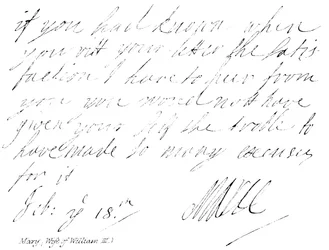 if you had known when
you ritt your letter the satis
faction I have to heer from
you you would not have
given your self the troble to
have made so many excuses
for it
Feb: ye 18.th
Marie
Mary, Wife of William III.)